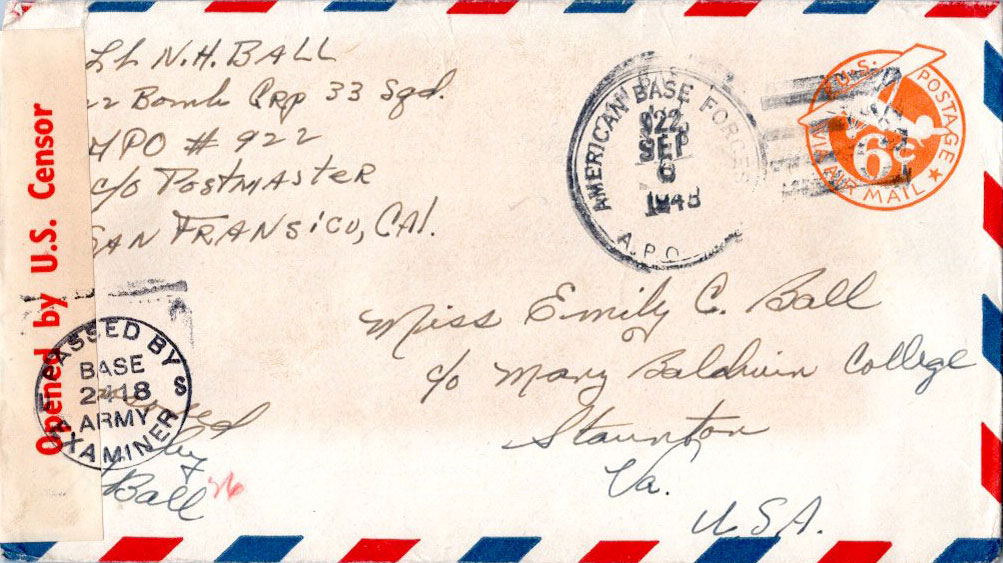 Lt N.H. BALL
22 Bomb Grp 33 Sqd.
APO # 922
c/o POSTMASTER
SAN FRANSICO, CAl.
Opened by U.S. Censor
AMERICAN BASE FORCES
922
SEP
1943
A.P.O.
U.S. POSTAGE
6¢
VIA AIR MAIL
Miss Emily C. Ball
c/o Mary Baldwin College
Staunton
Va.
U.S.A.
PASSED BY
BASE
ARMY
EXAMINER
by
Ball